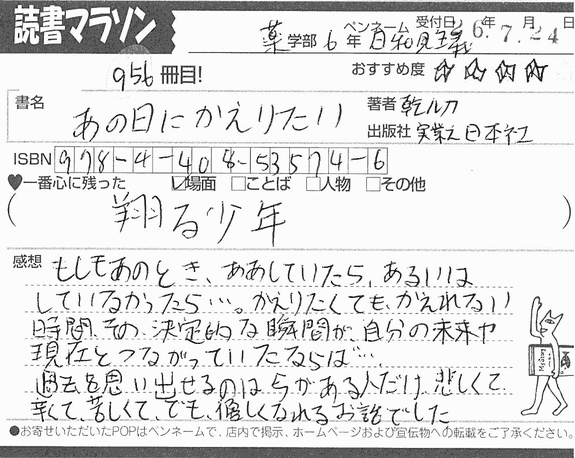 読書マラソン
薬学部 6年 ペンネーム 受付日 6年 7月24日
956冊目! おすすめ度 ☆☆☆☆
書名 あの日にかえりたい 著者 乾ルカ
出版社 実業之日本社
ISBN 978-4-408-53574-6
♥一番心に残った ☑場面 □ことば □人物 □その他
(翔る少年)
感想 もしもあのとき、ああしていたら、あるいは
していなかったら…。かえりたくても、かえれない
時間、その、決定的な瞬間が、自分の未来や
現在とつながっていたならば…
過去を思い出せるのは今がある人だけ。悲しくて
辛くて、苦しくて、でも、優しくなれるお話でした
●お寄せいただいたPOPはペンネームで、店内で掲示、ホームページおよび宣伝物への転載をご了承ください。